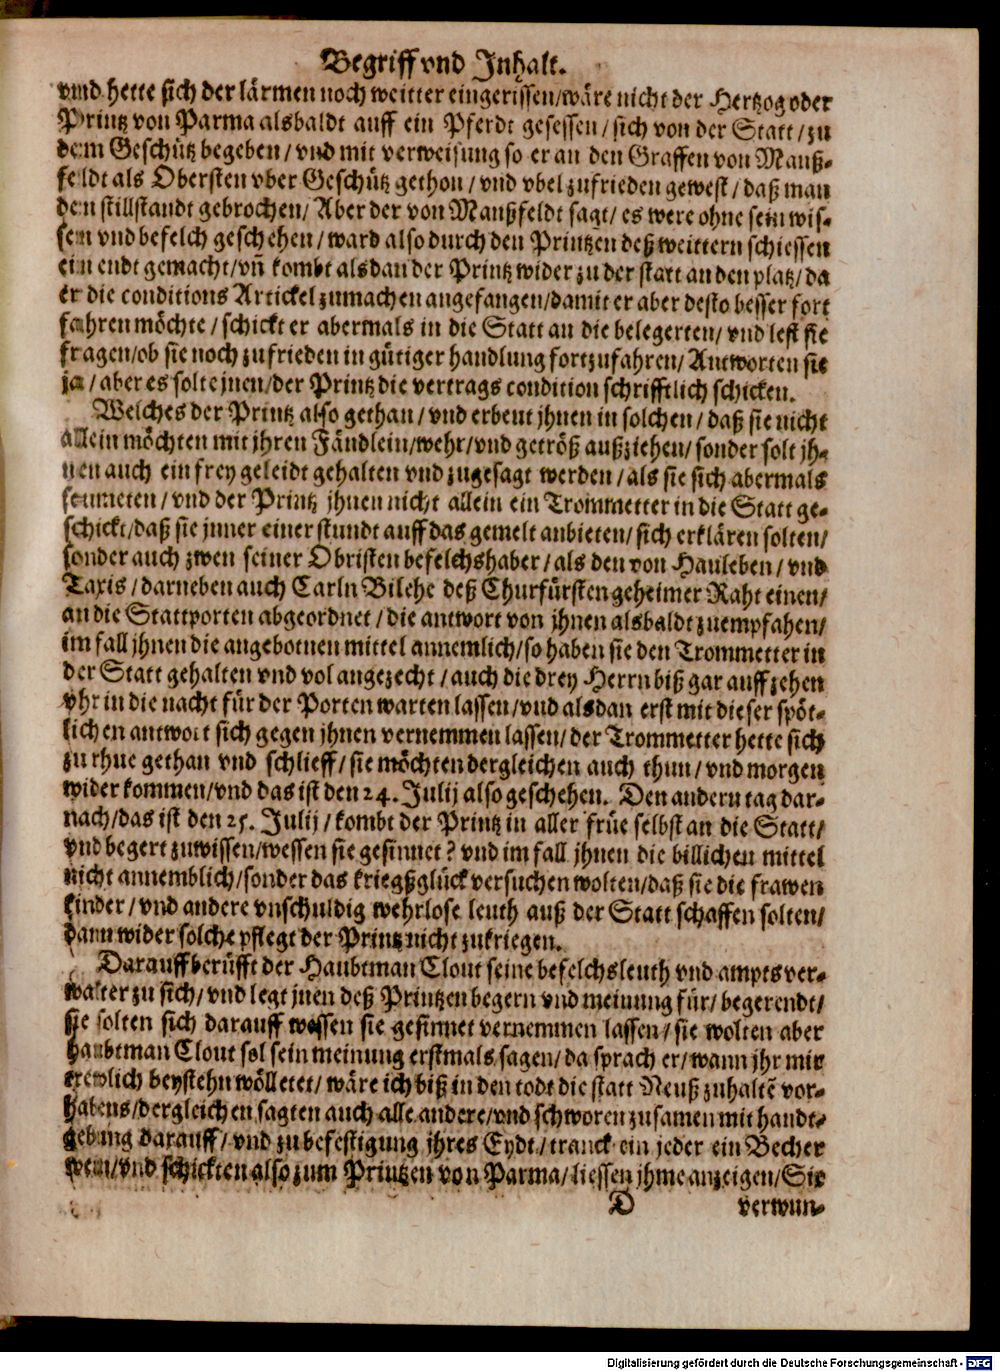 Begriff vnd Inhalt.
vnnd hette sich der lärmen noch weitter eingerissen/wäre nicht der Hertzog oder
Printz von Parma alsbaldt auff ein Pferdt gesessen/sich von der Statt/zu
dem Geschütz begeben/vnd mit verweisung so er an den Graffen von Mauß-
feldt als Obersten vber Geschütz gethon/vnd vbel zufrieden gewest/daß man
den stillstandt gebrochen/Aber der von Maußfeldt sagt/es were ohne sein wis-
sen vnd befelch geschehen/ward also durch den Printzen deß weittern schiessen
ein endt gemacht/vñ kombt alsdan der Printz wider zu der statt an den platz/da
er die conditions Artickel zumachen angefangen/damit er aber desto besser fort
fahren möchte/schickt er abermals in die Statt an die belegerten/vnd lest sie
fragen/ob sie noch zufrieden in gütiger handlung fortzufahren/Antworten sie
ja/aber es solte jnen/der Printz die vertrags condition schrifftlich schicken.
Welches der Printz also gethan/vnd erbeut jhnen in solchen/daß sie nicht
allein möchten mit jhren Fändlein/wehr/vnd getröß außziehen/sonder solt jh-
nen auch ein frey geleidt gehalten vnd zugesagt werden/als sie sich abermals
seumeten/vnd der Printz jhnen nicht allein ein Trommetter in die Statt ge-
schickt/daß sie jnner einer stundt auff das gemelt anbieten/sich erklären solten/
sonder auch zwen seiner Obristen befelchshaber/als den von Hauleben/vnd
Taxis/darneben auch Carln Bilehe deß Churfürsten geheimer Raht einen/
an die Stattporten abgeordnet/die antwort von jhnen alsbaldt zuempfahen/
im fall jhnen die angebotnen mittel annemlich/so haben sie den Trommetter in
der Statt gehalten vnd vol angezecht/auch die drey Herrn biß gar auff zehen
vhr in die nacht für der Porten warten lassen/vnd alsdan erst mit dieser spöt-
lichen antwort sich gegen jhnen vernemmen lassen/der Trommetter hette sich
zu rhue gethan vnd schlieff/sie möchten dergleichen auch thun/vnd morgen
wider kommen/vnd das ist den 24. Julij also geschehen. Den andern tag dar-
nach/das ist den 25. Julij/kombt der Printz in aller früe selbst an die Statt/
vnd begert zuwissen/wessen sie gesinnet? vnd im fall jhnen die billichen mittel
nicht annemblich/sonder das kriegßglück versuchen wolten/daß sie die frawen
kinder/vnd andere vnschuldig wehrlose leuth auß der Statt schaffen solten/
dann wider solche pflegt der Printz nicht zukriegen.
Darauff berüfft der Haubtman Clout seine befelchsleuth vnd ampts ver-
walter zu sich/vnd legt jnen deß Printzen begern vnd meinung für/begerendt/
sie solten sich darauff wessen sie gesinnet vernemmen lassen/sie wolten aber
haubtman Clout sol sein meinung erstmals sagen/da sprach er/wann jhr mir
trewlich beystehn wölletet/wäre ich biß in den todt die statt Neuß zuhaltē vor-
habens/dergleichen sagten auch alle andere/vnd schworen zusamen mit handt-
gebung darauff/vnd zu befestigung jhres Eydt/tranck ein jeder ein Becher
wein/vnd schickten also zum Printzen von Parma/liessen jhme anzeigen/Sie
D verwun-
Digitalisierung gefördert durch die Deutsche Forschungsgemeinschaft - DFG